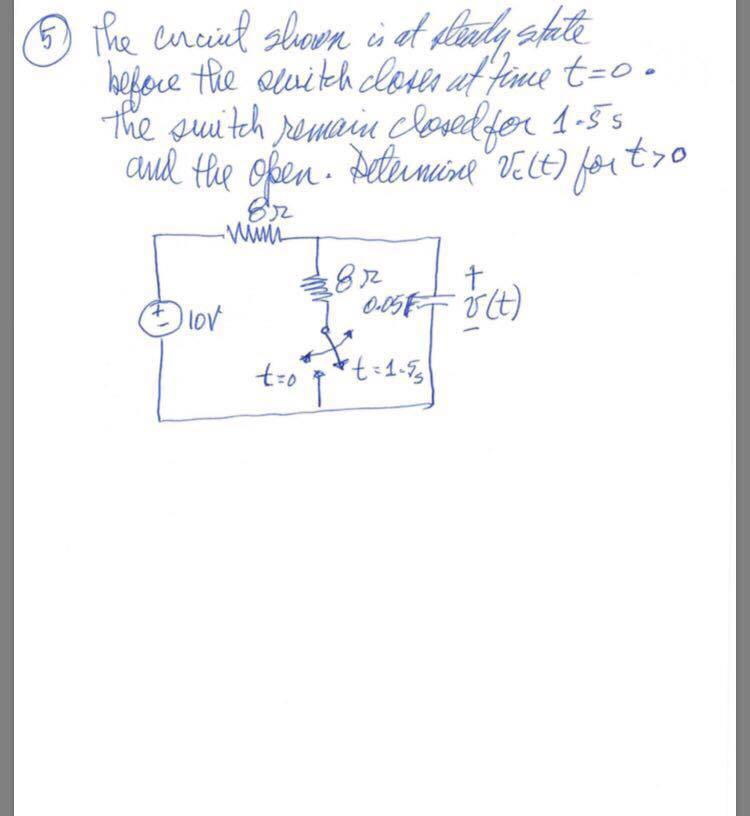 5 The circuit shown is at steady state
before the switch closes at time t=0.
The switch remain closed for 1.5 s
and the open. Determine Vc(t) for t>0
8Ω
8Ω
0.05F
+
10V
v(t)
-
t=0
t=1.5s